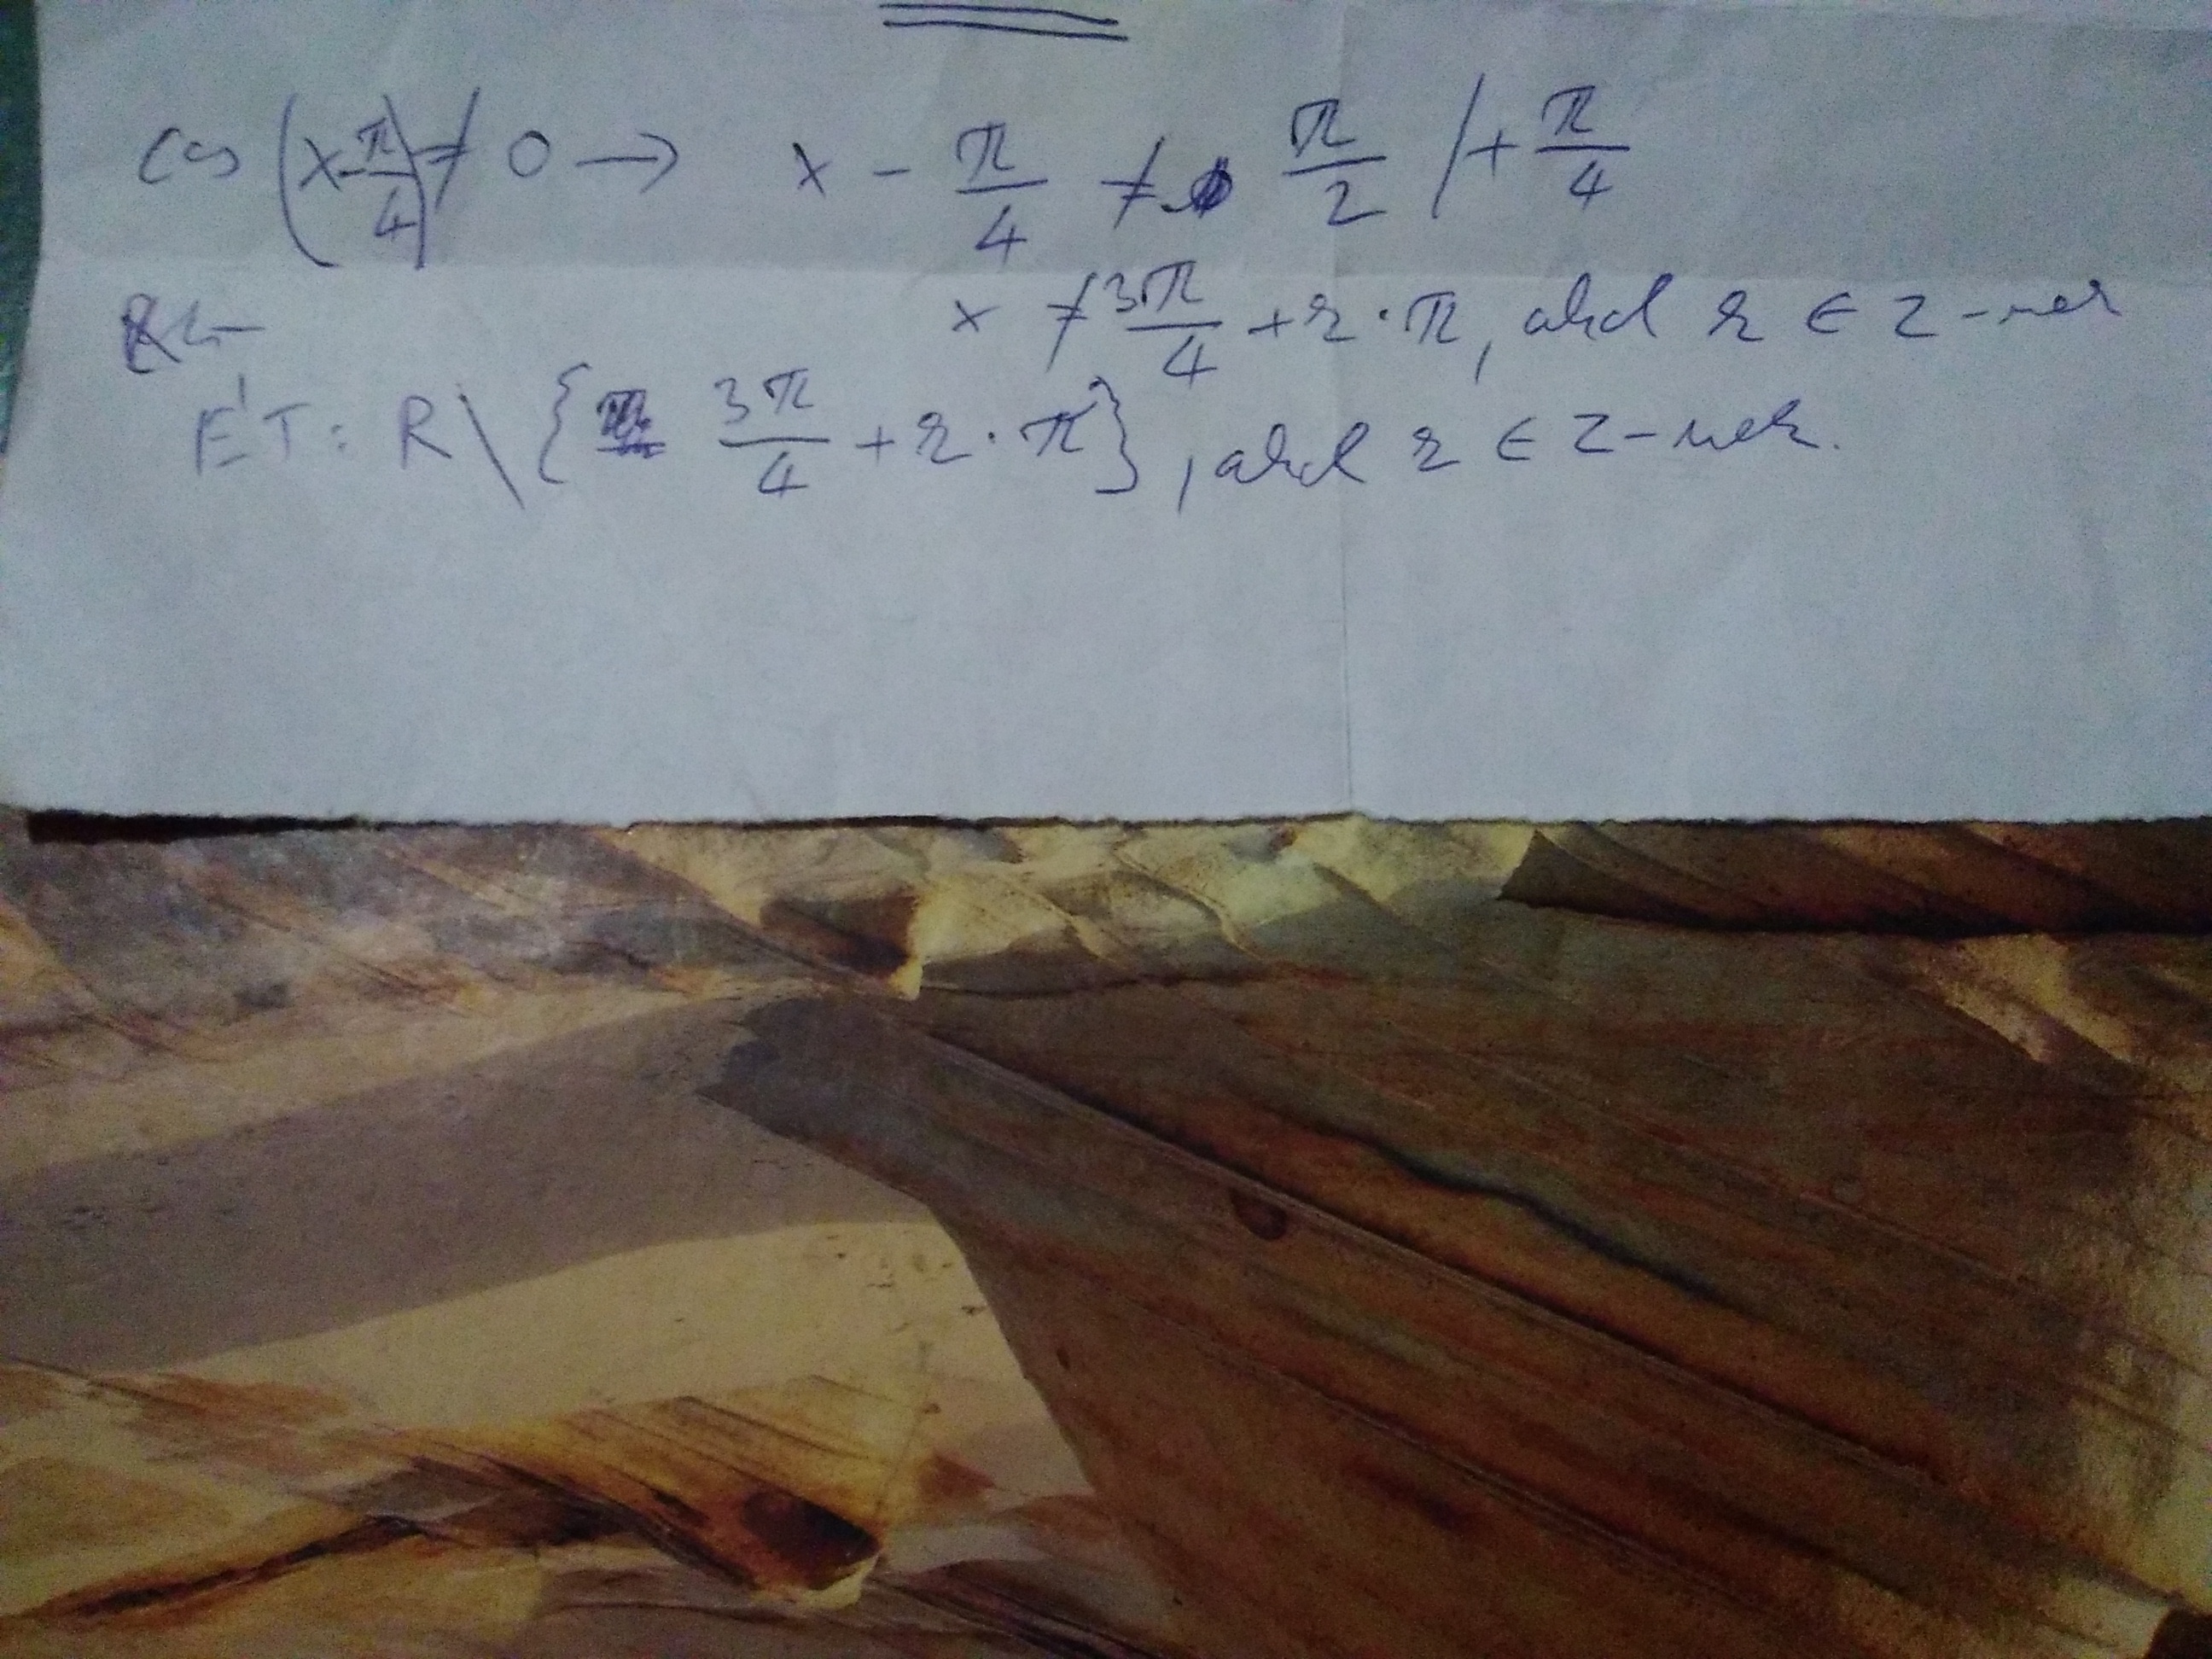 cos (x-π/4) ≠ 0 → x - π/4 ≠ π/2 /+ π/4
x ≠ 3π/4 + k·π, ahol k ∈ Z-nek
ÉT: R\{ 3π/4 + k·π}, ahol k ∈ Z-nek.